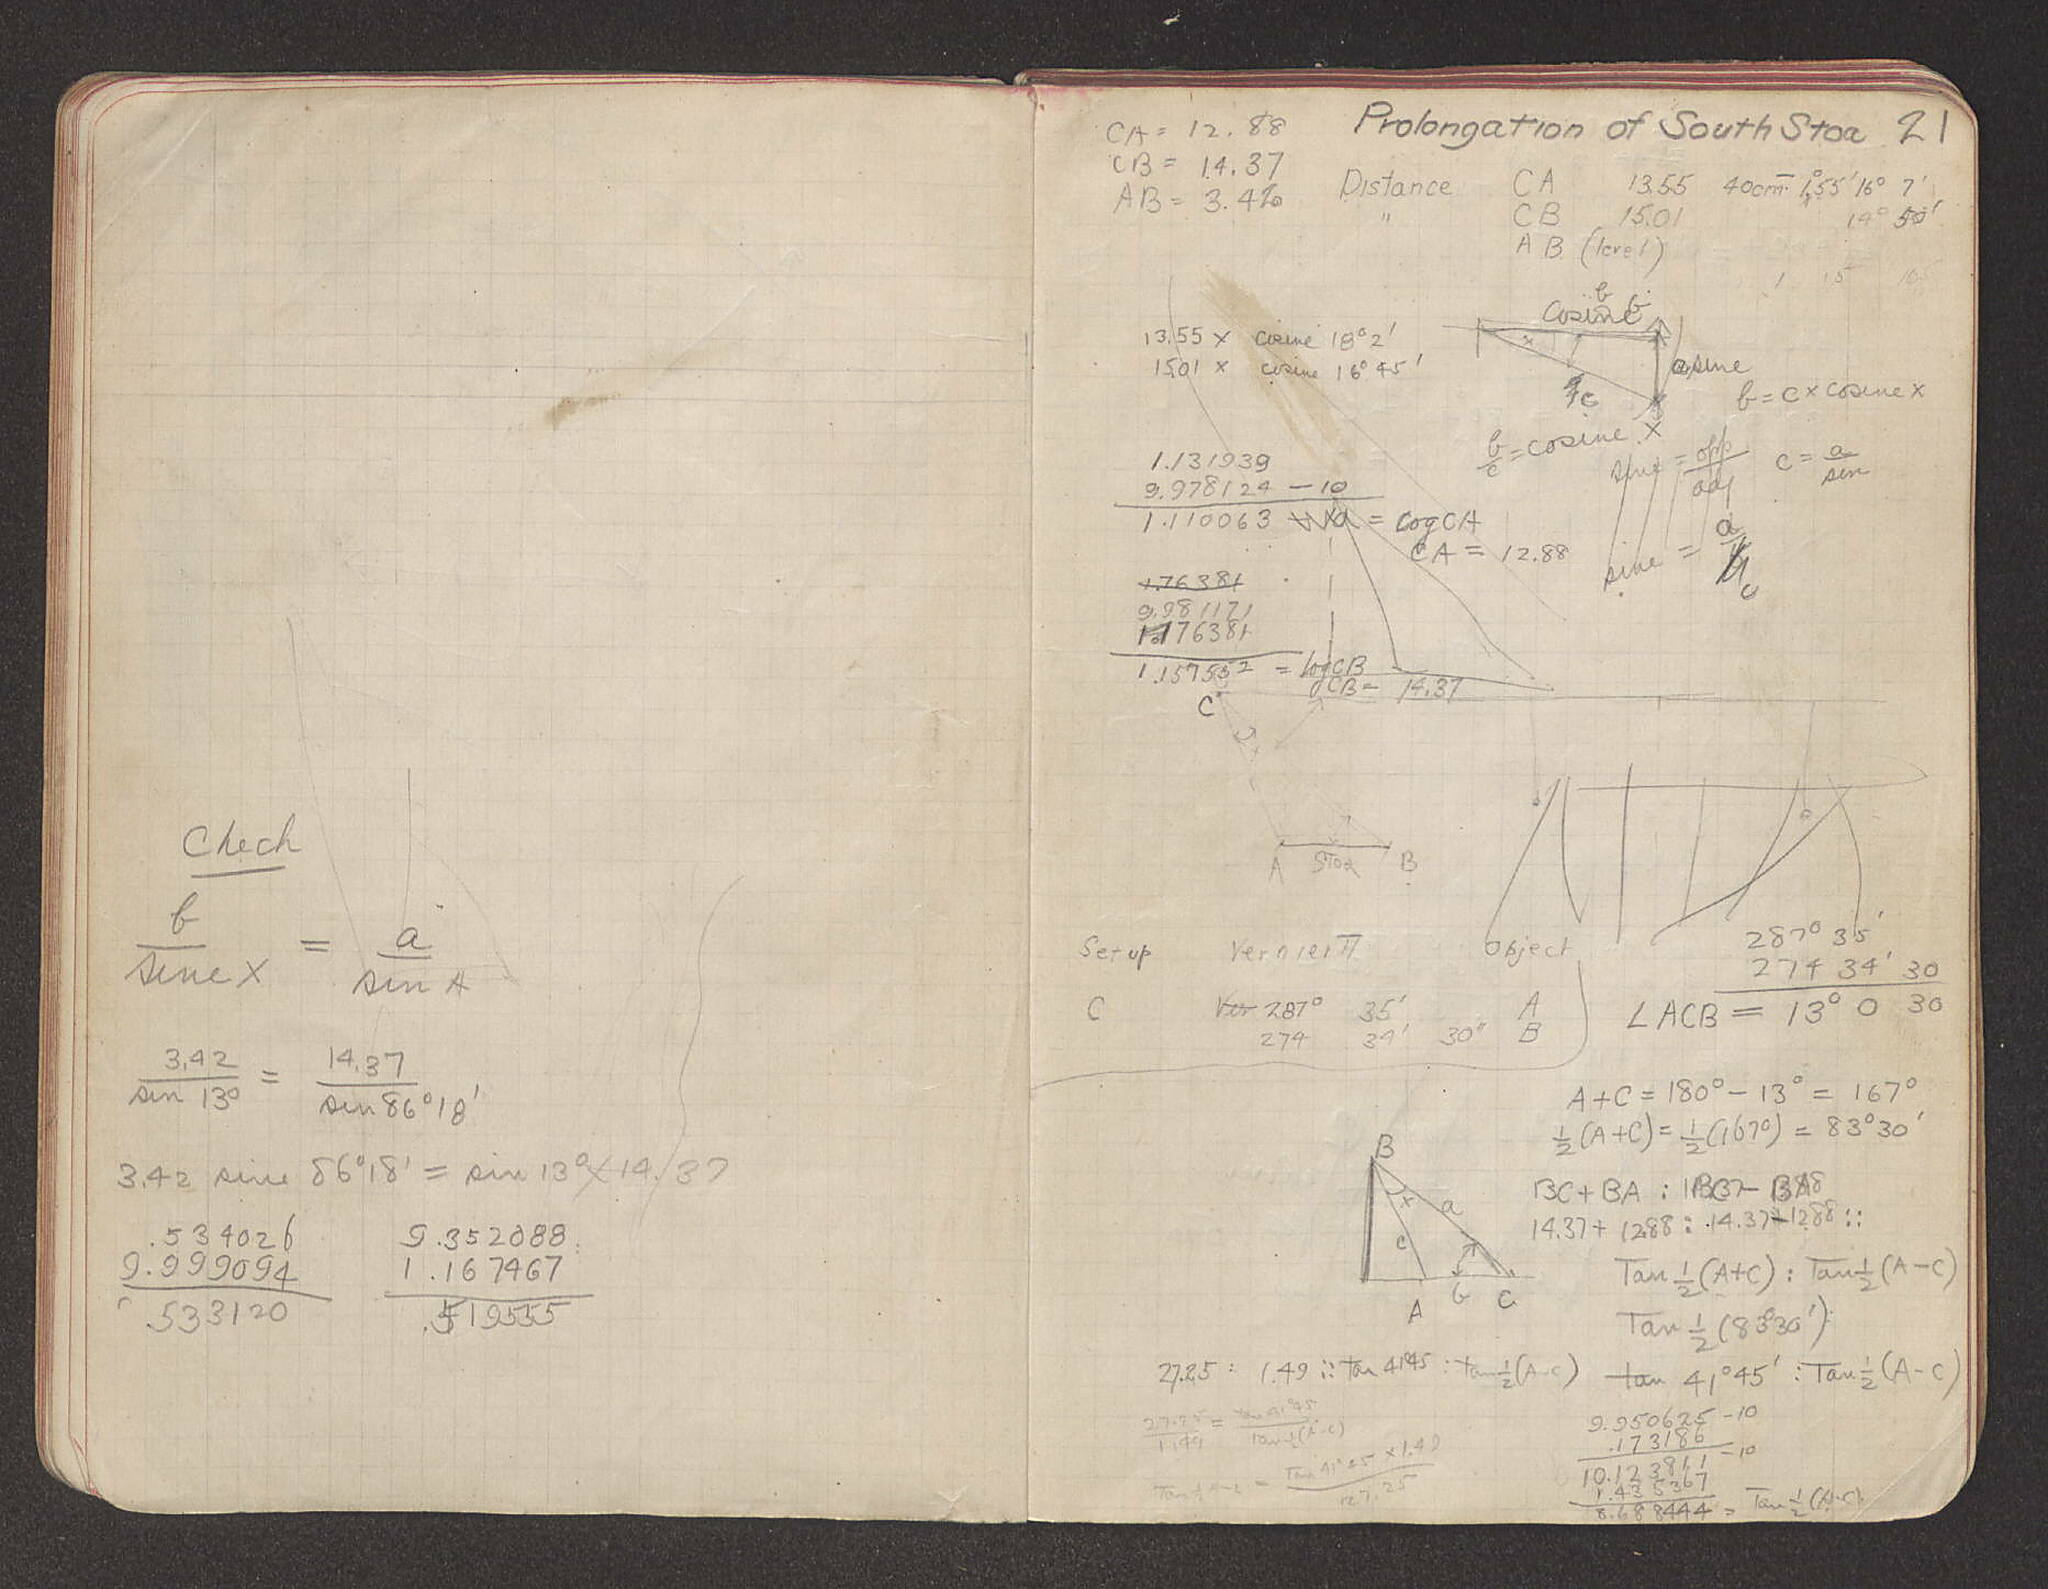 Check
b/sine X = a/sin A
3.42/sin 13° = 14.37/sin 86° 18'
3.42 sine 86° 18' = sin 13° X 14.37
.534026
9.999094
.533120
9.352088
1.167467
.519555
Prolongation of South Stoa 21
CA = 12.88
CB = 14.37
AB = 3.42
Distance CA 13.55 40cm 1°55' 16° 7'
" CB 15.01 14° 50'
AB (level)
cosine b
13.55 x cosine 18° 2'
15.01 x cosine 16° 45'
x
a sine
c
b = c x cosine x
b/c = cosine x
sine = opp/adj
c = a/sin
sine = a/c
1.131939
9.978124 - 10
1.110063 = log CA
CA = 12.88
1.76381
9.981171
1.176381
1.157552 = log CB
CB = 14.37
C
A Stoa B
Set up Vernier II Object
C Ver 287° 35' A
274 34' 30" B
287° 35'
274 34' 30
∠ACB = 13° 0 30
A + C = 180° - 13° = 167°
½(A+C) = ½(167°) = 83° 30'
B
x a
c
A b C
BC + BA : BC - BA
14.37 + 12.88 : 14.37 - 12.88 ::
Tan ½(A+C) : Tan ½(A-C)
Tan ½(83°30') :
27.25 : 1.49 :: tan 41°45 : tan ½(A-C)
tan 41° 45' : Tan ½(A-C)
27.25/1.49 = tan 41°45/tan ½(A-C)
Tan ½ A-C = Tan 41° 45 x 1.49/27.25
9.950625 - 10
.173186
10.123811 - 10
1.435367
8.688444 = Tan ½(A-C)